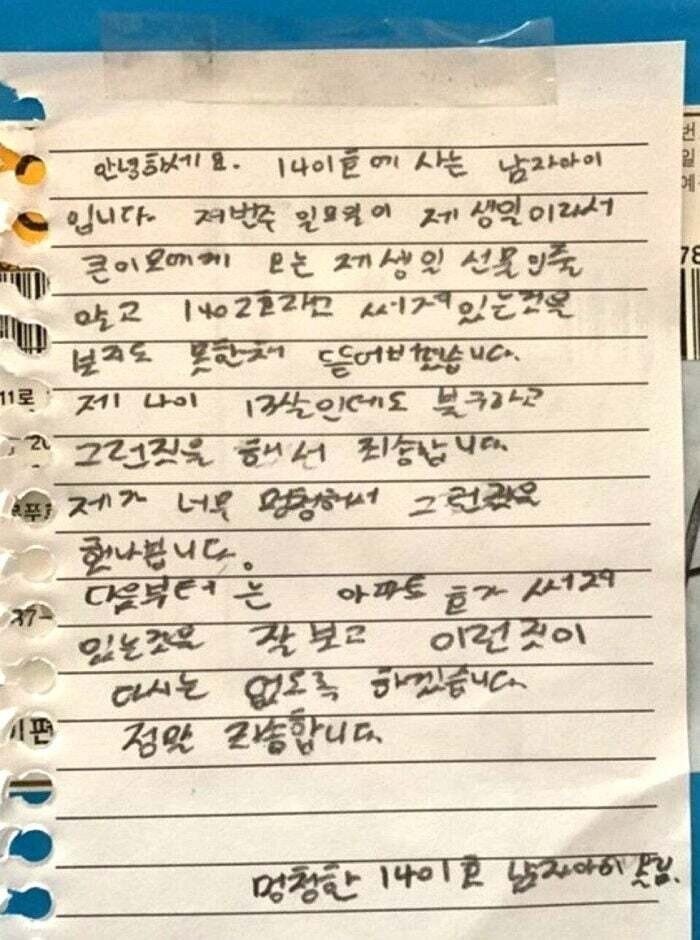 안녕하세요. 1401호에 사는 남자아이
입니다. 저번주 일요일이 제 생일이라서
큰이모에게 오는 제생일 선물인줄
알고 1402호라고 써져있는것을
보지도 못한채 뜯어버렸습니다.
제 나이 13살인데도 불구하고
그런짓을 해서 죄송합니다.
제가 너무 멍청해서 그런
다음부터는 아파트 호가 써져
있는것을 잘보고 이런짓이
다시는 없도록 하겠습니다.
정말 죄송합니다.
멍청한 1401호 남자아이 올림.
번
일
예
78
11로
20
37-
편